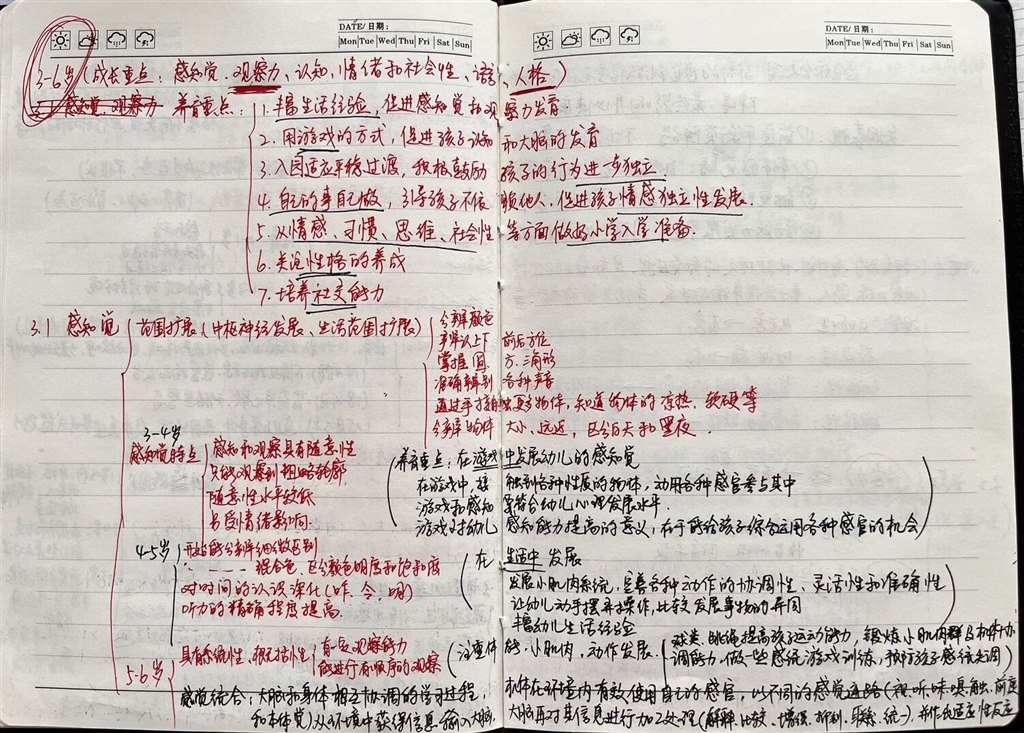 DATE/日期:
Mon Tue Wed Thu Fri Sat Sun
DATE/日期:
Mon Tue Wed Thu Fri Sat Sun
3-6岁(成长重点:感知觉、观察力、认知、情绪和社会性、语言、人格)
感知觉、观察力 养育重点:
1. 丰富生活经验,促进感知觉和观察力发育
2. 用游戏的方式,促进孩子认知和大脑的发育
3. 入园适应平稳过渡,积极鼓励孩子的行为进一步独立
4. 自己的事自己做,引导孩子不依赖他人,促进孩子情感独立性发展.
5. 从情感、习惯、思维、社会性等方面做好小学入学准备.
6. 关注性格的养成
7. 培养社交能力
3.1 感知觉 范围扩展(中枢神经发展、生活范围扩展)
分辨颜色
辨认上下 前后方位
掌握圆、方、三角形
准确辨别各种声音
通过手接触更多物体,知道物体的凉热、软硬等
分辨物体大小,远近,区分白天和黑夜.
3-4岁
感知觉特点
感知和观察具有随意性
只能观察到粗略轮廓
随意性水平较低
易受情绪影响
(养育重点:在游戏中发展幼儿的感知觉
在游戏中,接触到各种性质的物体,动用各种感官参与其中
游戏和感知要符合幼儿心理发展水平.
游戏对幼儿感知能力提高的意义,在于能给孩子综合运用各种感官的机会)
4-5岁
开始能分辨细微区别
混合色,区分颜色明度和饱和度
对时间的认识深化(昨、今、明)
听力的精确程度提高.
(在生活中发展
发展小肌肉系统,完善各种动作的协调性、灵活性和准确性
让幼儿动手摆弄操作,比较发展事物的异同
丰富幼儿生活经验
5-6岁
具有系统性、概括性
有一定观察能力
能进行有顺序的观察
(注重体能、小肌肉、动作发展.
球类、跳绳提高孩子运动能力,锻炼小肌肉群及机体协
调能力,做一些感统游戏训练,预防孩子感统失调)
感觉统合:大脑和身体相互协调的学习过程,机体在环境内有效使用自己的感官,以不同的感觉通路(视、听、味、嗅、触、前庭
和本体觉)从环境中获得信息输入大脑,大脑再对其信息进行加工处理(解释、比较、增强、抑制、联系、统一),并作出适应性反应